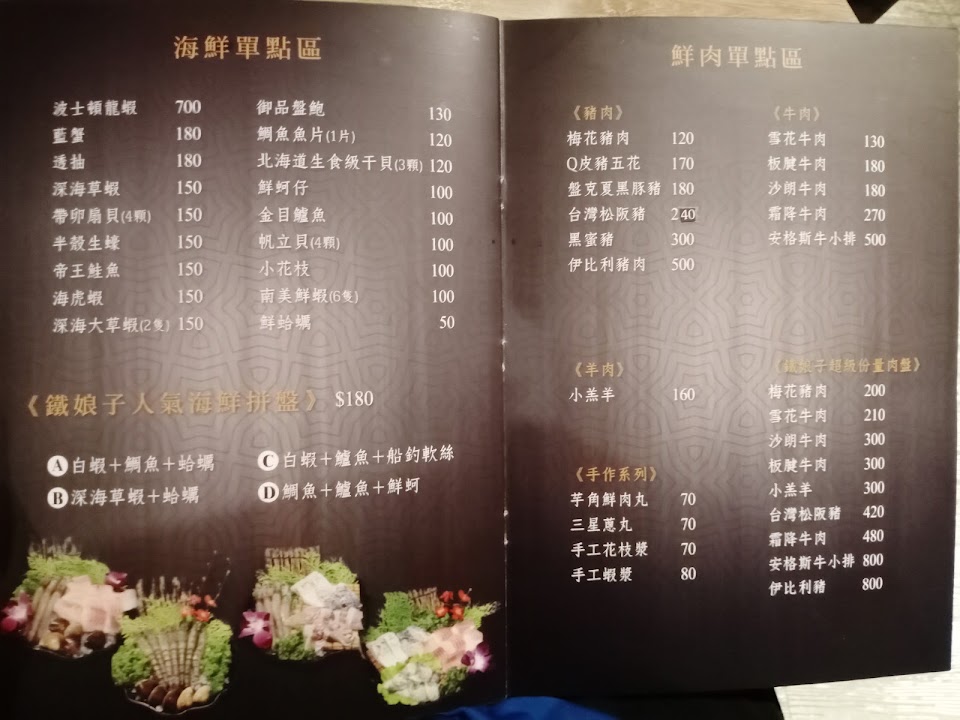 海鮮單點區
波士頓龍蝦 700
藍蟹 180
透抽 180
深海草蝦 150
帶卵扇貝(4顆) 150
半殼生蠔 150
帝王鮭魚 150
海虎蝦 150
深海大草蝦(2隻) 150
御品盤鮑 130
鯛魚魚片(1片) 120
北海道生食級干貝(3顆) 120
鮮蚵仔 100
金目鱸魚 100
帆立貝(4顆) 100
小花枝 100
南美鮮蝦(6隻) 100
鮮蛤蠣 50
《鐵娘子人氣海鮮拼盤》 $180
A 白蝦+鯛魚+蛤蠣
B 深海草蝦+蛤蠣
C 白蝦+鱸魚+船釣軟絲
D 鯛魚+鱸魚+鮮蚵
鮮肉單點區
《豬肉》
梅花豬肉 120
Q皮豬五花 170
盤克夏黑豚豬 180
台灣松阪豬 240
黑蜜豬 300
伊比利豬肉 500
《牛肉》
雪花牛肉 130
板腱牛肉 180
沙朗牛肉 180
霜降牛肉 270
安格斯牛小排 500
《羊肉》
小羔羊 160
《手作系列》
芋角鮮肉丸 70
三星蔥丸 70
手工花枝漿 70
手工蝦漿 80
《鐵娘子超級份量肉盤》
梅花豬肉 200
雪花牛肉 210
沙朗牛肉 300
板腱牛肉 300
小羔羊 300
台灣松阪豬 420
霜降牛肉 480
安格斯牛小排 800
伊比利豬 800